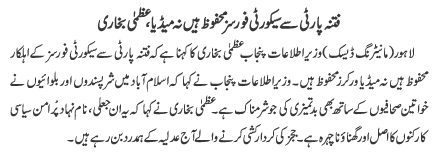 فتنہ پارٹی سے سیکورٹی فورسز محفوظ ہیں نہ میڈیا، عظمیٰ بخاری
لاہور (مانیٹرنگ ڈیسک) وزیر اطلاعات پنجاب عظمیٰ بخاری کا کہنا ہے کہ فتنہ پارٹی سے سیکورٹی فورسز کے اہلکار
محفوظ ہیں نہ میڈیا ورکرز محفوظ ہیں۔ وزیر اطلاعات پنجاب نے کہا کہ اسلام آباد میں شرپسندوں اور بلوائیوں نے
خواتین صحافیوں کے ساتھ بھی بدتمیزی کی جو شرمناک ہے۔ عظمیٰ بخاری نے کہا کہ یہ ان جعلی، نام نہاد پُرامن سیاسی
کارکنوں کا اصل اور گھناؤنا چہرہ ہے۔ ججز کی کردار کشی کرنے والے آج عدلیہ کے ہمدرد بن رہے ہیں۔